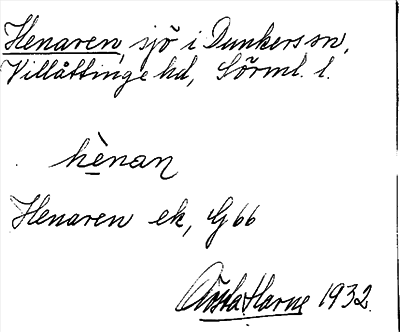 Henaren, sjö i Dunkers sn,
Villåttinge hd, Sörml. l.
hènan
Henaren ek, G 66
Gösta Harne 1932.